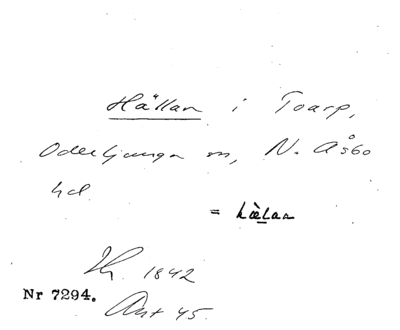 Hällan i Toarp,
Oderljunga sn, N. Åsbo
hd.
= hælan
1842
Nr 7294.
45.